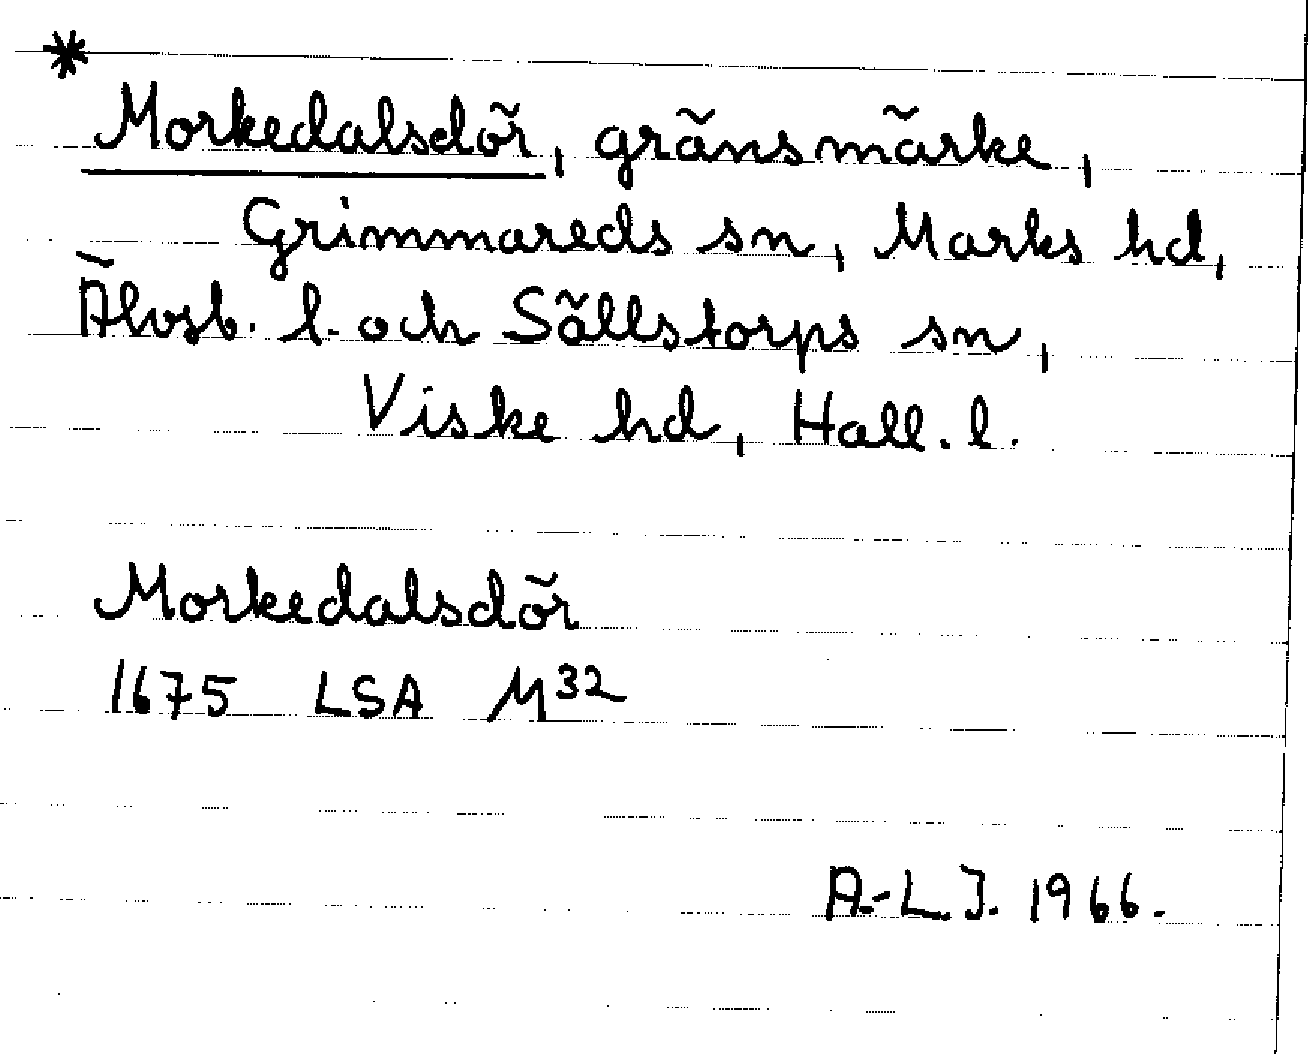 *
Morkedalsdör, gränsmärke,
Grimmareds sn, Marks hd,
Älvsb. l. och Sällstorps sn,
Viske hd, Hall. l.
Morkedalsdör
1675 LSA M32
A.-L. J. 1966.